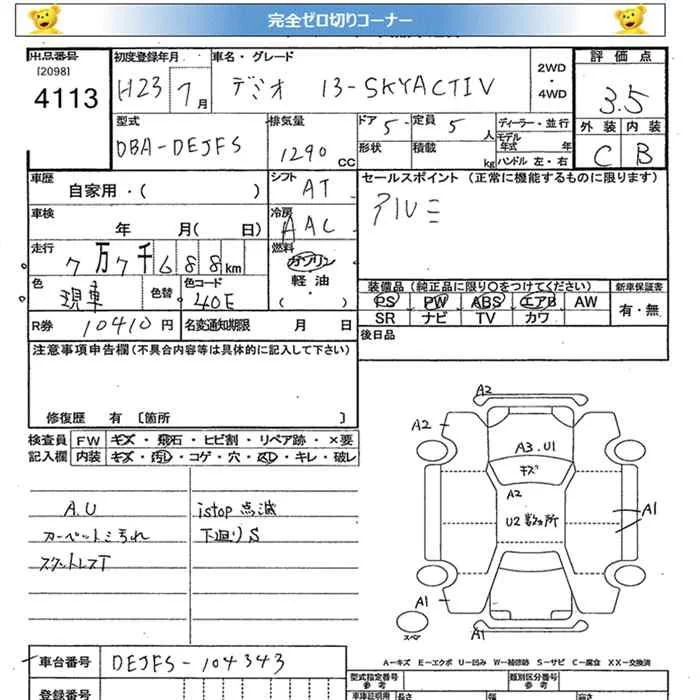 完全ゼロ切りコーナー
出品番号
[2098]
4113
初度登録年月
H23 7月
車名・グレード
デミオ 13-SKYACTIV
2WD
・
4WD
評価点
3.5
外装 内装
C B
型式
DBA-DEJFS
排気量
1290 CC
ドア 5
定員 5 人
ディーラー・並行
モデル
年式 年
形状
積載 kg
ハンドル 左・右
車歴
自家用・( )
シフト
AT
セールスポイント (正常に機能するものに限ります)
アルミ
車検
年 月( 日)
冷房
AAC
走行
7万7千688km
燃料
ガソリン
軽油・
( )
色
現車
色替
色コード
40E
装備品 (純正品に限り○をつけてください)
新車保証書
PS PW ABS エアB AW
有・無
SR ナビ TV カワ
R券 10410円
名変通知期限 月 日
後日品
注意事項申告欄 (不具合内容等は具体的に記入して下さい)
修復歴 有 [箇所 ]
検査員
記入欄
FW キズ・飛石・ヒビ割・リペア跡・×要
内装 キズ・汚レ・コゲ・穴・スレ・キレ・破レ
A.U
カーペットミ汚れ
スタットレスT
istop 点滅
下廻りS
A2
A2
A3.U1
キズ
A2
U2 数ヵ所
A1
A1
スペア
A1
A−キズ E−エクボ U−凹み W−補修跡 S−サビ C−腐食 XX−交換済
車台番号 DEJFS-104343
登録番号
型式指定番号
参考
類別区分番号
参考
車庫証明用
長さ
幅
高さ